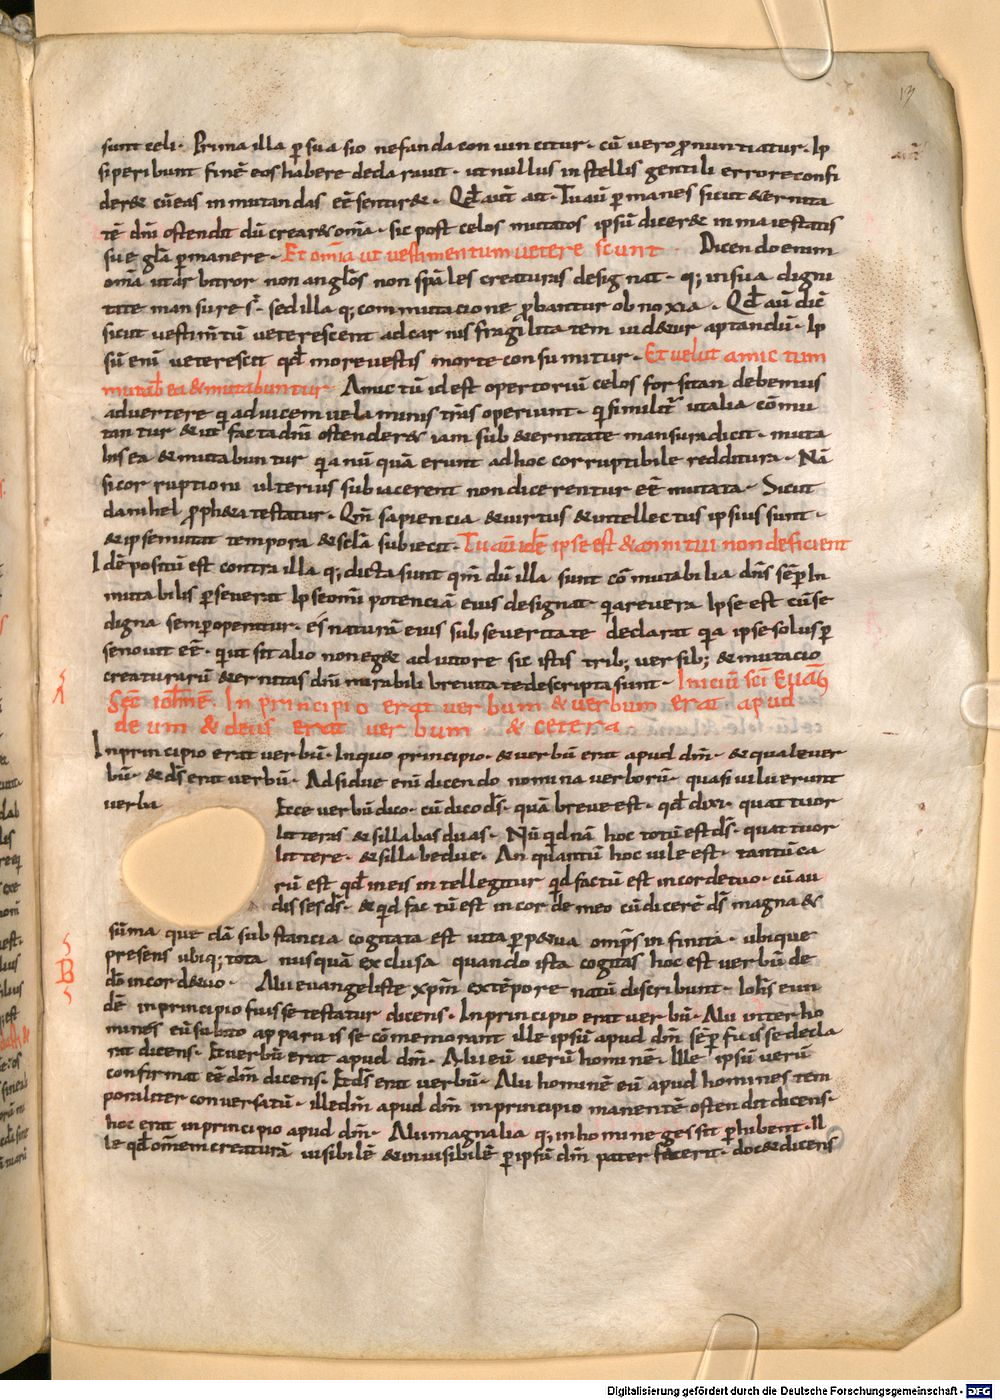 sunt celi. Prima illa p̱suasio nefanda convincitur. cū vero ꝓnuntiatur. Ip
si peribunt finē eos habere declaravit. ut nullus in stellis gentili errore confi
der& cū eas inmutandas eē sentir&. Qđ aut̄ ait. Tu aū p̱manes sicut & ęrnita
tē dn̄i ostendit dū crear& om̄a. sic post celos mutatos ipsū dicer& in maiestatis
sue gła p̱manere. Et om̄ia ut vestimentum veterescunt. Dicendo enim
om̄a utar bitror non angłos non sp̄ales creaturas designat. q; insua digni
tate mansure s̄. sed illa q; commutacione ꝓbantur obnoxia. Qđ aū dic̄
sicut vestim̄tū veterescent ad carnis fragilitatem vid&ur aptandū. Ip
sū enī veterescit qđ more vestis morte consumitur. Et velut amictum
mutab̄ ea & mutabuntur. Amictū id est opertoriū celos forsitan debemus
advertere q̄ ad vicem velaminis tr̄is operiunt. q̄ similit̄ ut alia cōmu
tantur & ut facta dn̄i ostender& iam sub &ernitate mansura dicit. muta
bis ea & mutabuntur q̄a nū quā erunt ad hoc corruptibile redditura. Nā
si corruptioni ulterius subiacerent non dicerentur eē mutata. Sicut
danihel ꝓph&a testatur. Qm̄ sapiencia & virtus & intellectus ipsius sunt.
& ipse mutat tempora & sc̄la subiecit. Tu aū idē ipse est & anni tui non deficient
Idē positū est contra illa q; dicta sunt qm̄ dū illa sunt cōmutabilia dn̄s sēp̱ in
mutabilis p̱severat Ipse om̄ī potenciā eius designat. q̄a revera Ipse est cū se
digna semp̱ operatur. es naturā eius sub severitate declarat q̄a ipse solus p̱
se novit eē. q̄ ut sit alio non eg& adiutore sic istis trib; versib; & mutacio
creaturarū & ęrnitas dn̄i mirabili brevitate descripta sunt. Iniciū sc̄i Evāg̅
Sc̄dē iohān̄ē. In principio erat verbum & verbum erat apud
deum & deus erat verbum & cetera.
In principio erat verbū. In quo principio. & verbū erat apud dm̄. & quale ver
bū. & ds̄ erat verbū. Adsidue enī dicendo nomina verborū. quasi viluerunt
verba Ecce verbū dico. cū dico ds̄. quā breve est. qđ dixi. quattuor
litteras & sillabas duas. Nū qđ nā hoc totū est ds̄. quattuor
littere. & sillabe due. An quantū hoc vile est. tantū ca
rū est qđ in eis intellegitur qđ factū est in corde tuo. cū au
disses ds̄. & qđ factū est in corde meo cū dicerē ds̄ magna &
sūma que dā substancia cogitata est vita p̱p&ua omp̄s infinita. ubique
presens ubiq; tota nusquā exclusa quando ista cogitas hoc est verbū de
dō in cord&uo. Alii evangeliste xp̄m ex tēpore natū discribunt. Ioh̄s eun
dē in principio fuisse testatur dicens. In principio erat verbū. Alii inter ho
mines eū subito apparuisse cōmemorant ille ipsū apud dm̄ sēp̱ fuisse decla
rat dicens. Et verbū erat apud dm̄. Alii eū verū hominē. Ille ipsū verū
confirmat eē dm̄ dicens. Et ds̄ erat verbū. Alii hominē eū apud homines tem
poraliter conversatū. ille dm̄ apud dm̄ in principio manentē ostendit dicens.
hoc erat in principio apud dm̄. Alii magnalia q; in homine gessit p̱hibent. Il
le qđ om̄em creaturā visibilē & invisibilē p̱ ipsū dm̄ pater fecerit. doc& dicens
Digitalisierung gefördert durch die Deutsche Forschungsgemeinschaft - DFG